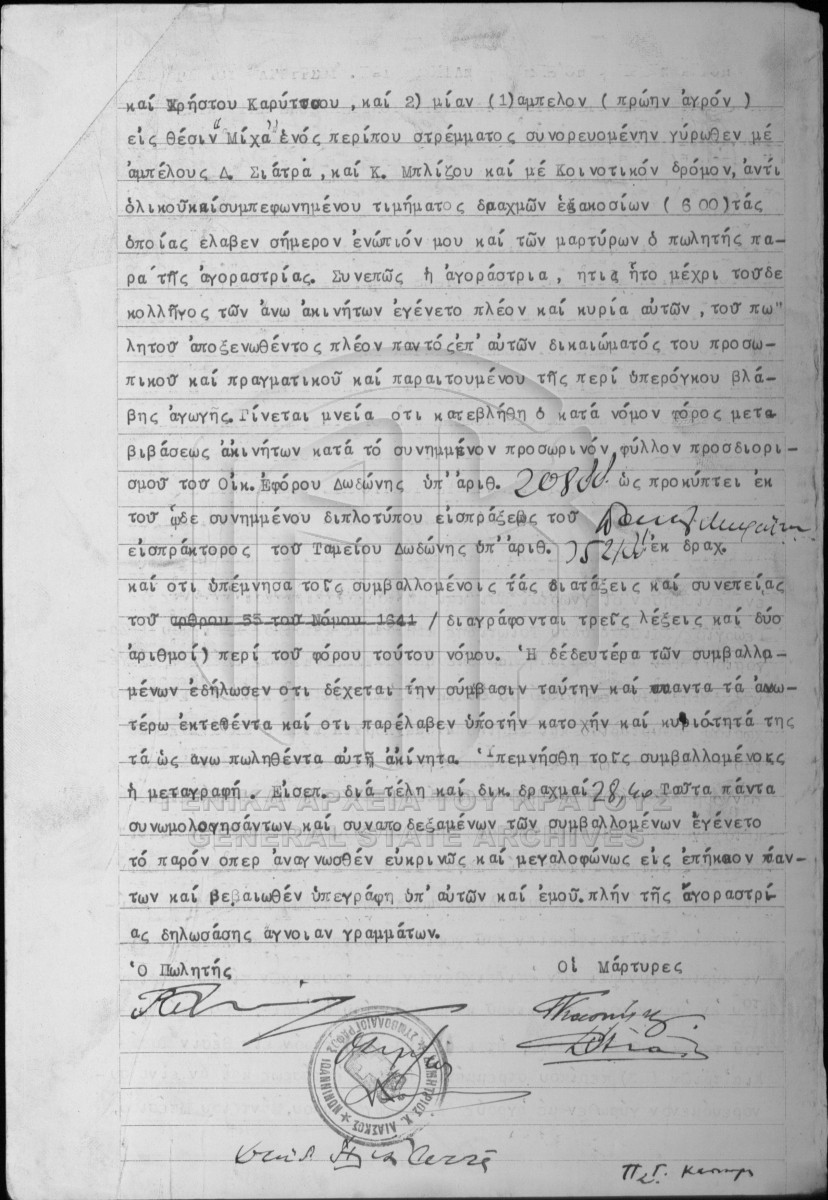 καί Χρήστου Καρύτσου, καί 2) μίαν (1)αμπελον ( πρώην ἀγρόν )
εἰς θέσιν "Μίχα" ἑνός περίπου στρέμματος συνορευομένην γύρωθεν μέ
ἀμπέλους Δ. Σιάτρα, καί Κ. Μπλίζου καί μέ Κοινοτικόν δρόμον, ἀντί
ὁλικοῦκαίσυμπεφωνημένου τιμήματος δραχμῶν ἑξακοσίων ( 600)τάς
ὁποίας ἔλαβεν σήμερον ἐνώπιόν μου καί τῶν μαρτύρων ὁ πωλητής πα-
ρά τῆς ἀγοραστρίας. Συνεπῶς ἡ ἀγοράστρια , ητις ἦτο μέχρι τοῦδε
κολλῆγος τῶν ἄνω ἀκινήτων ἐγένετο πλέον καί κυρία αὐτῶν , τοῦ πω"
λητοῦ ἀποξενωθέντος πλέον παντός ἐπ' αὐτῶν δικαιώματός του προσω-
πικοῦ καί πραγματικοῦ καί παραιτουμένου τῆς περί ὑπερόγκου βλά-
βης ἀγωγῆς. Γίνεται μνεία οτι κατεβλήθη ὁ κατά νόμον φόρος μετα
βιβάσεως ἀκινήτων κατά τό συνημμένον προσωρινόν φύλλον προσδιορι-
σμοῦ τοῦ Οἰκ. Ἐφόρου Δωδώνης ὑπ' ἀριθ. ὡς προκύπτει ἐκ
τοῦ ὧδε συνημμένου διπλοτύπου εἰσπράξεως τοῦ
εἰσπράκτορος τοῦ Ταμείου Δωδώνης ὑπ' ἀριθ. ἐκ δραχ.
καί οτι ὑπέμνησα τοῖς συμβαλλομένοις τάς διατάξεις καί συνεπείας
τοῦ αρθρου 55 τοῦ Νόμου 1641 / διαγράφονται τρεῖς λέξεις καί δύο
ἀριθμοί) περί τοῦ φόρου τούτου νόμου. Ἡ δέδευτέρα τῶν συμβαλλο-
μένων ἐδήλωσεν οτι δέχεται τήν σύμβασιν ταύτην καί παντα τά ἀνω-
τέρω ἐκτεθέντα καί οτι παρέλαβεν ὑποτήν κατοχήν καί κυριότητά της
τά ὡς ανω πωληθέντα αὐτῇ ἀκίνητα. Ὑπεμνήσθη τοῖς συμβαλλομένοις
ἡ μεταγραφή . Εἰσεπ. διά τέλη καί δικ. δραχμαί Ταῦτα πάντα
συνωμολογησάντων καί συναποδεξαμένων τῶν συμβαλλομένων ἐγένετο
τό παρόν οπερ ἀναγνωσθέν εὐκρινῶς καί μεγαλοφώνως εἰς ἐπήκοον πάν-
των καί βεβαιωθέν ὑπεγράφη ὑπ' αὐτῶν καί ἐμοῦ. πλήν τῆς ἀγοραστρί-
ας δηλωσάσης ἄγνοιαν γραμμάτων.
Ὁ Πωλητής Οἱ Μάρτυρες
ΓΕΝΙΚΑ ΑΡΧΕΙΑ ΤΟΥ ΚΡΑΤΟΥΣ
GENERAL STATE ARCHIVES